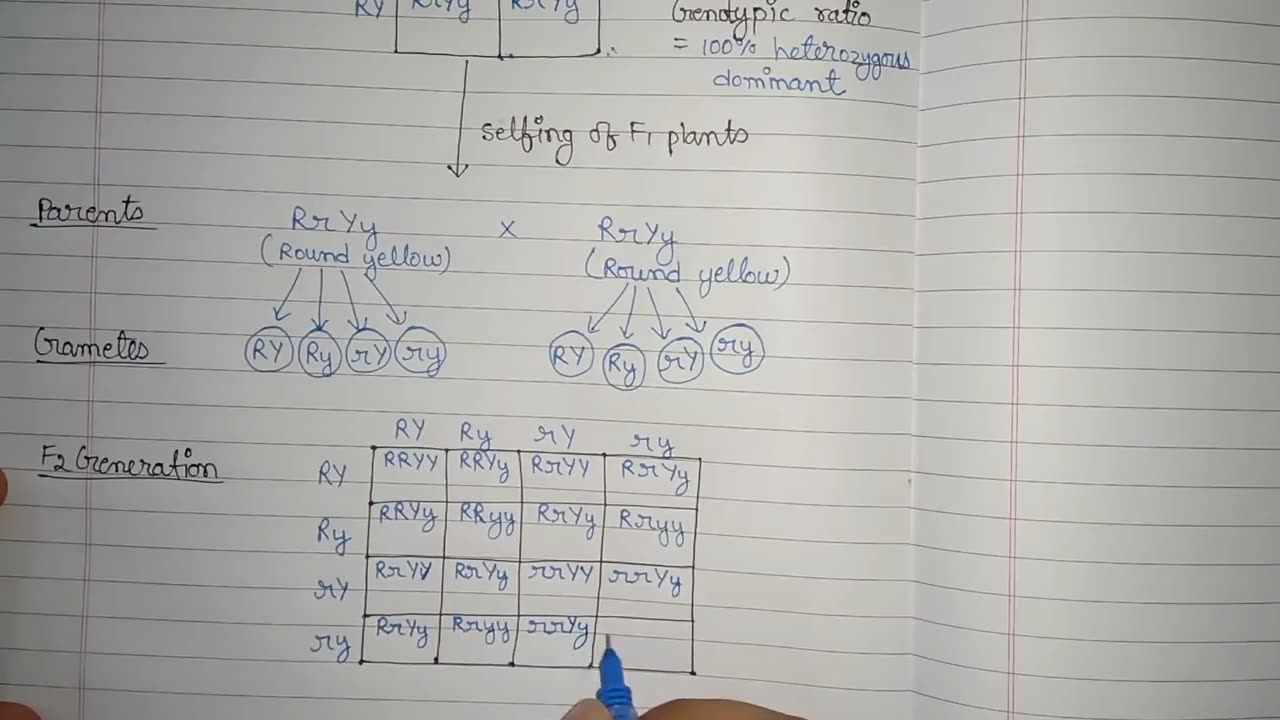 RY RrYy RrYy
Genotypic ratio
= 100% heterozygous
dominant
Selfing of F1 plants
Parents RrYy x RrYy
(Round yellow) (Round yellow)
Gametes RY Ry rY ry RY Ry rY ry
F2 Generation
RY Ry rY ry
RY RRYY RRYy RrYY RrYy
Ry RRYy RRyy RrYy Rryy
rY RrYY RrYy rrYY rrYy
ry RrYy Rryy rrYy